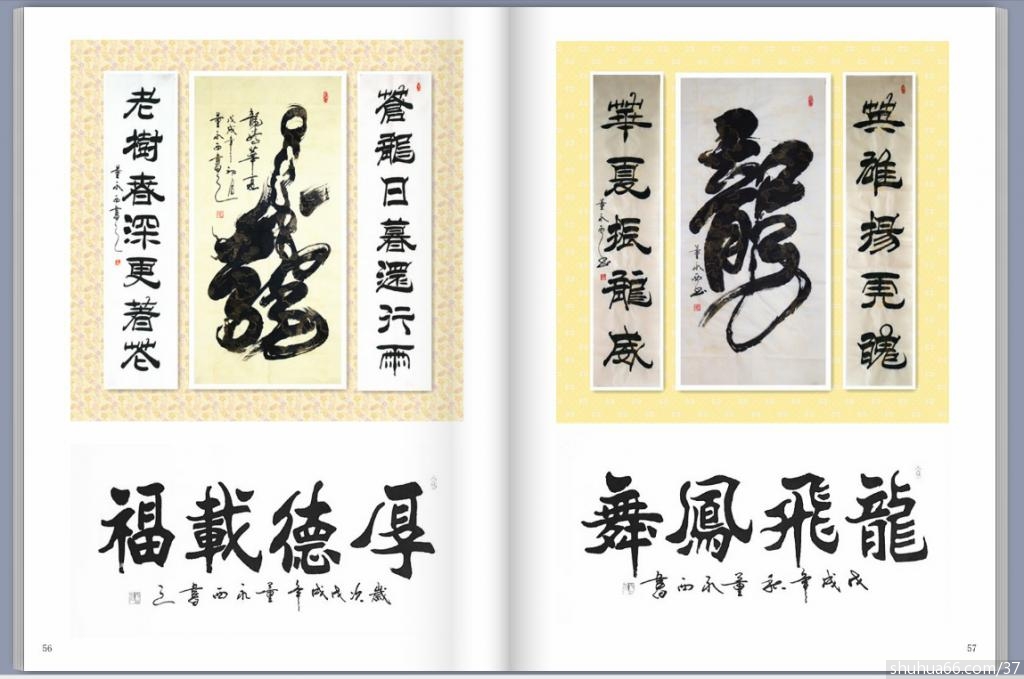 蒼龍日暮還行雨
龍
龍騰華夏
戊戌年初月
董永西書之
老樹春深更著花
董永西書之
厚德載福
歲次戊戌年董永西書之
56
英雄揚虎魄
龍
董永西書
華夏振龍威
董永西書
龍飛鳳舞
戊戌年秋董永西書
57
shuhua66.com/37